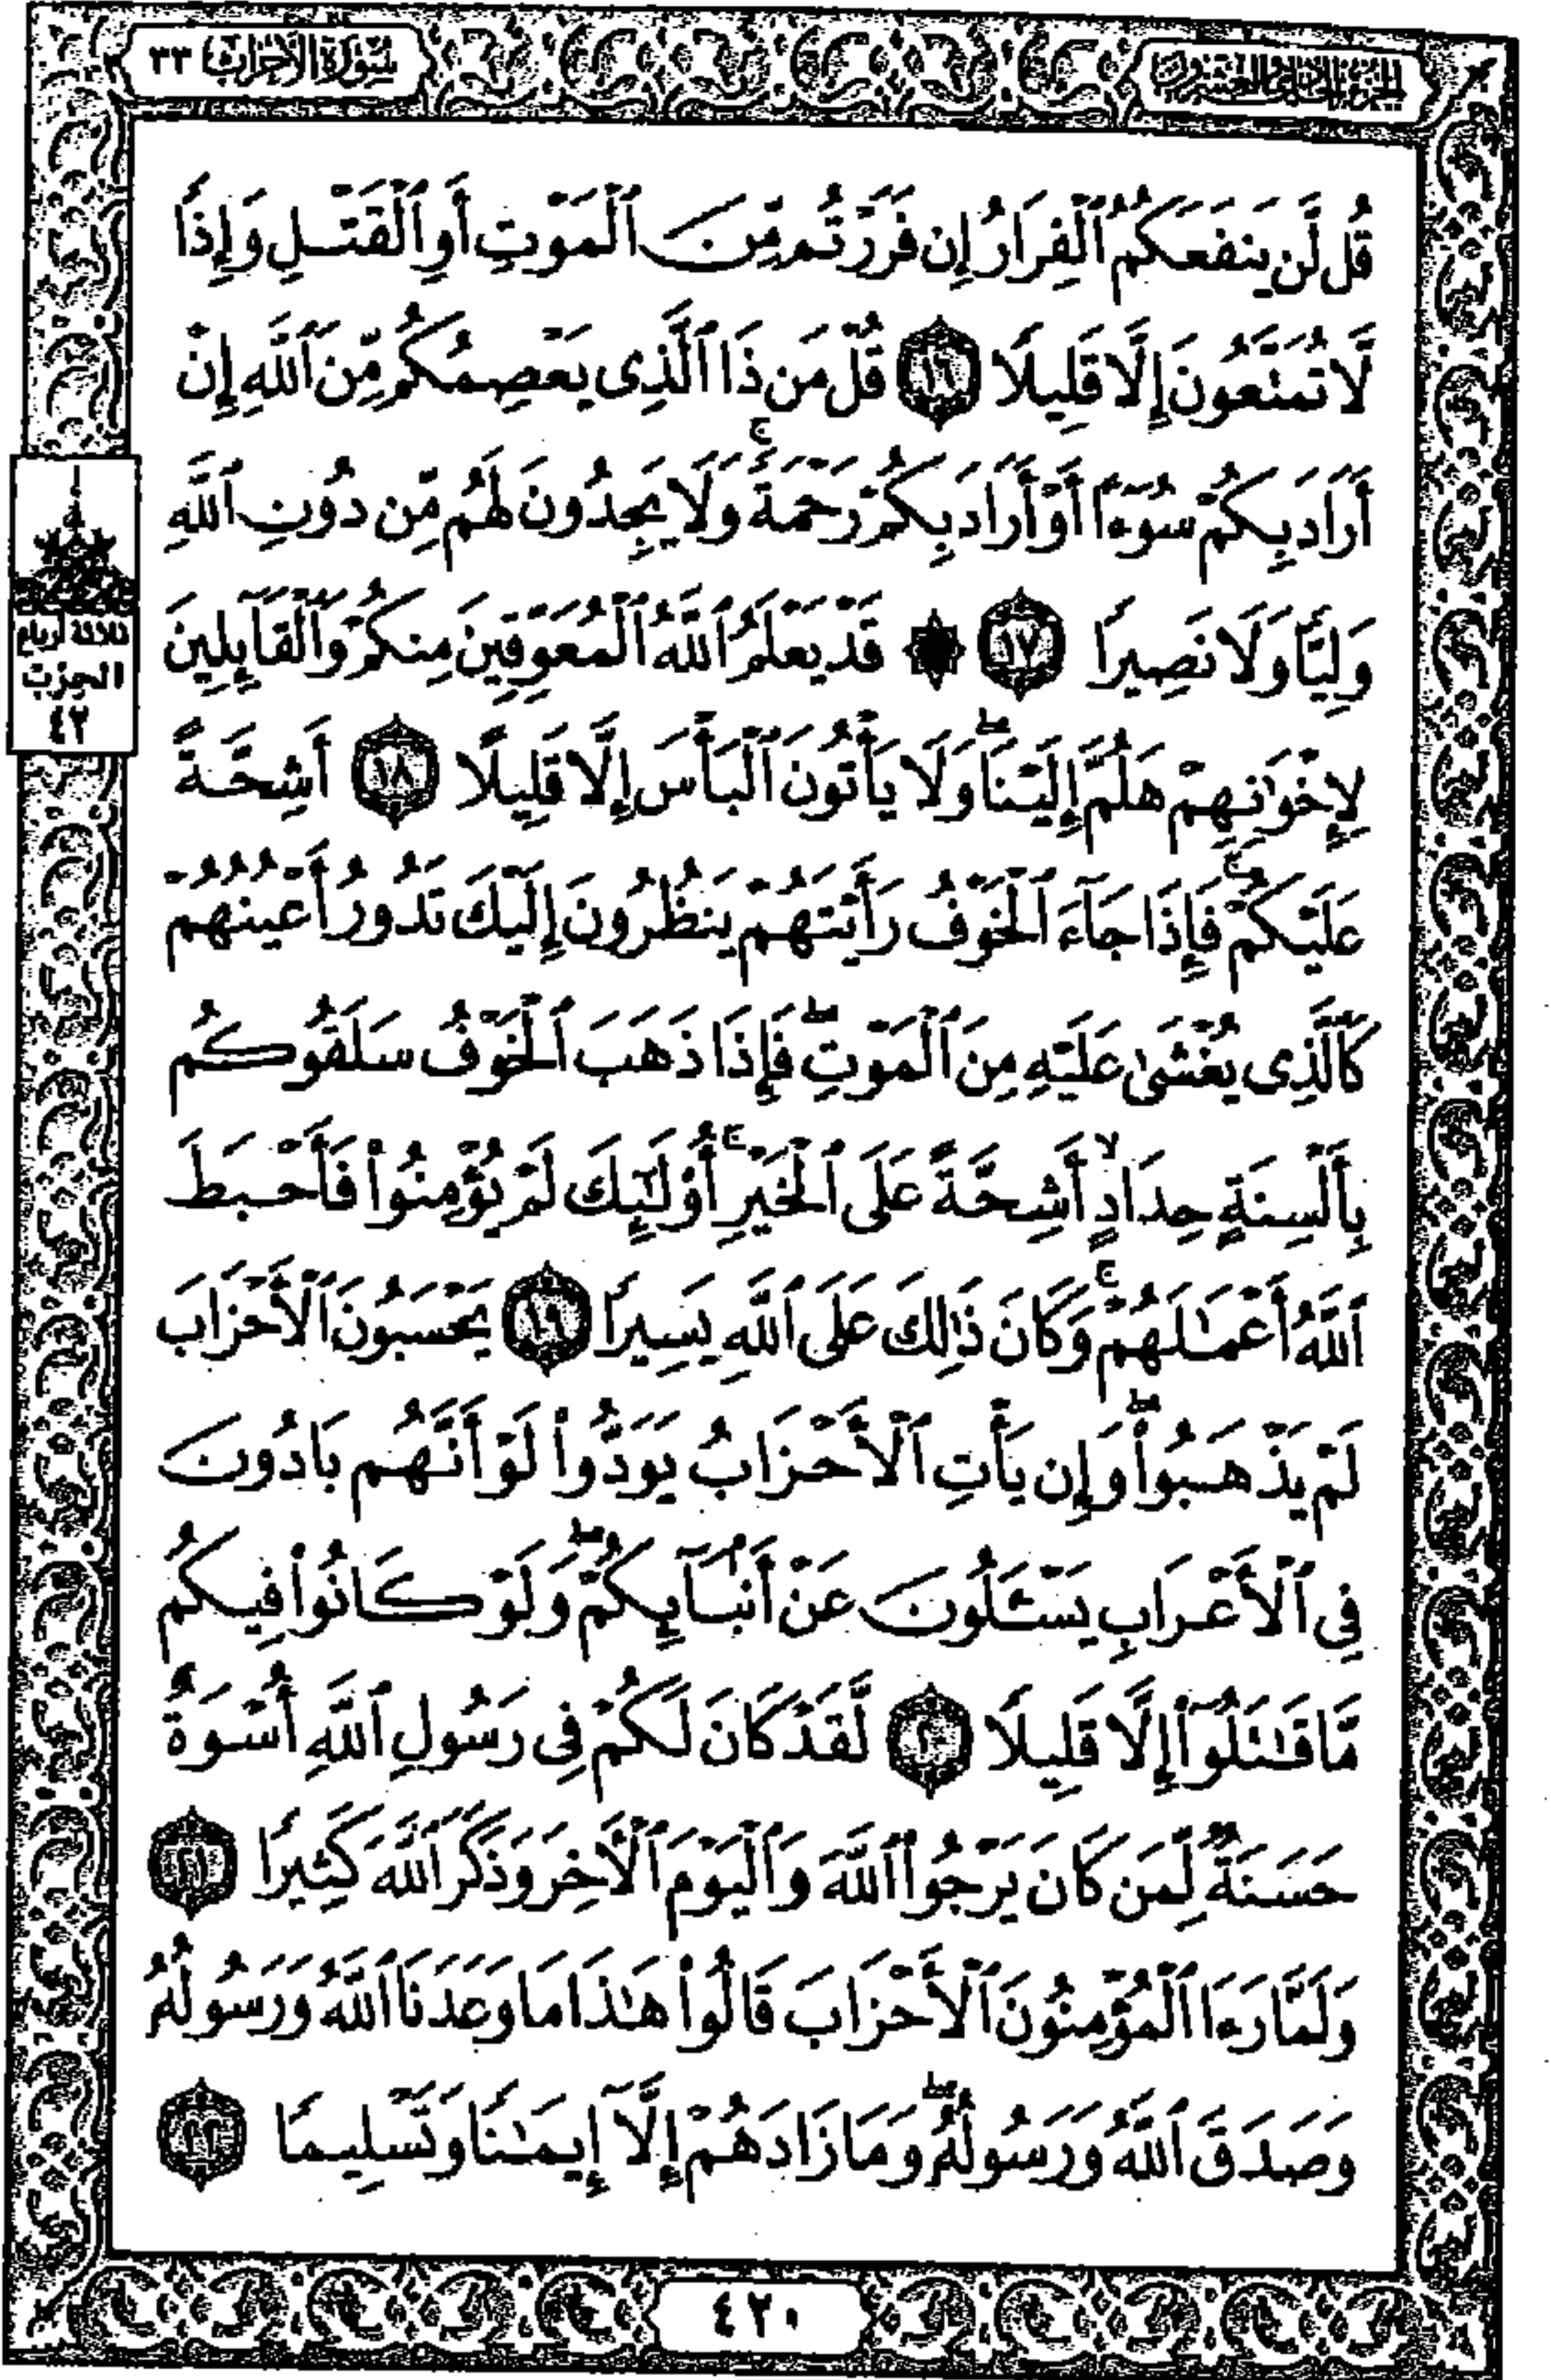 الجزء الحادي والعشرون
سورة الأحزاب ٣٣
قُل لَّن يَنفَعَكُمُ ٱلْفِرَارُ إِن فَرَرْتُم مِّنَ ٱلْمَوْتِ أَوِ ٱلْقَتْلِ وَإِذًا
لَّا تُمَتَّعُونَ إِلَّا قَلِيلًا ١٦ قُلْ مَن ذَا ٱلَّذِى يَعْصِمُكُم مِّنَ ٱللَّهِ إِنْ
أَرَادَ بِكُمْ سُوٓءًا أَوْ أَرَادَ بِكُمْ رَحْمَةً ۚ وَلَا يَجِدُونَ لَهُم مِّن دُونِ ٱللَّهِ
وَلِيًّا وَلَا نَصِيرًا ١٧ ۞ قَدْ يَعْلَمُ ٱللَّهُ ٱلْمُعَوِّقِينَ مِنكُمْ وَٱلْقَآئِلِينَ
لِإِخْوَٰنِهِمْ هَلُمَّ إِلَيْنَا ۖ وَلَا يَأْتُونَ ٱلْبَأْسَ إِلَّا قَلِيلًا ١٨ أَشِحَّةً
عَلَيْكُمْ ۖ فَإِذَا جَآءَ ٱلْخَوْفُ رَأَيْتَهُمْ يَنظُرُونَ إِلَيْكَ تَدُورُ أَعْيُنُهُمْ
كَٱلَّذِى يُغْشَىٰ عَلَيْهِ مِنَ ٱلْمَوْتِ ۖ فَإِذَا ذَهَبَ ٱلْخَوْفُ سَلَقُوكُم
بِأَلْسِنَةٍ حِدَادٍ ۙ أَشِحَّةً عَلَى ٱلْخَيْرِ ۚ أُو۟لَٰٓئِكَ لَمْ يُؤْمِنُوا۟ فَأَحْبَطَ
ٱللَّهُ أَعْمَٰلَهُمْ ۚ وَكَانَ ذَٰلِكَ عَلَى ٱللَّهِ يَسِيرًا ١٩ يَحْسَبُونَ ٱلْأَحْزَابَ
لَمْ يَذْهَبُوا۟ ۖ وَإِن يَأْتِ ٱلْأَحْزَابُ يَوَدُّوا۟ لَوْ أَنَّهُم بَادُونَ
فِى ٱلْأَعْرَابِ يَسْـَٔلُونَ عَنْ أَنۢبَآئِكُمْ ۖ وَلَوْ كَانُوا۟ فِيكُم
مَّا قَٰتَلُوٓا۟ إِلَّا قَلِيلًا ٢٠ لَّقَدْ كَانَ لَكُمْ فِى رَسُولِ ٱللَّهِ أُسْوَةٌ
حَسَنَةٌ لِّمَن كَانَ يَرْجُوا۟ ٱللَّهَ وَٱلْيَوْمَ ٱلْـَٔاخِرَ وَذَكَرَ ٱللَّهَ كَثِيرًا ٢١
وَلَمَّا رَءَا ٱلْمُؤْمِنُونَ ٱلْأَحْزَابَ قَالُوا۟ هَٰذَا مَا وَعَدَنَا ٱللَّهُ وَرَسُولُهُۥ
وَصَدَقَ ٱللَّهُ وَرَسُولُهُۥ ۖ وَمَا زَادَهُمْ إِلَّآ إِيمَٰنًا وَتَسْلِيمًا ٢٢
ثلاثة أرباع
الحزب
٤٢
٤٢٠